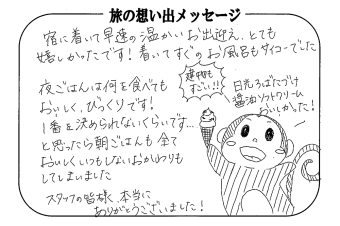 旅の想い出メッセージ
宿に着いて早速の温かいお出迎え、とても
嬉しかったです！着いてすぐのお風呂もサイコーでした
夜ごはんは何を食べても
おいしく、びっくりです！
1番を決められないくらいです…
と思ったら朝ごはんも全て
おいしくいつもしないおかわりも
してしまいました
スタッフの皆様、本当に
ありがとうございました！
建物も
すごい!!!
日光ろばたづけ
醤油ソフトクリーム
おいしかった！